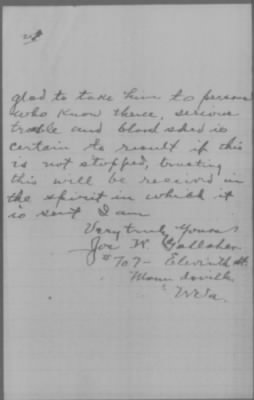 glad to take him to persons
who know these, serious
trouble and blood shed is
certain to result if this
is not stopped, trusting
this will be received in
the spirit in which it
is sent I am
Very truly Yours
Joe W. Gallaher
#707- Elevinth St.
Moundsville
W Va.